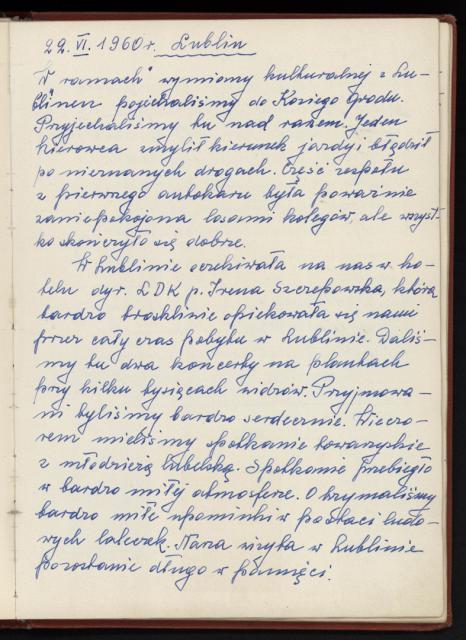 22. VI. 1960 r. Lublin
W ramach "wymiany kulturalnej z Lu-
blinem pojechaliśmy do Koziego Grodu.
Przyjechaliśmy tu nad ranem. Jeden
kierowca zmylił kierunek jazdy i błądził
po nieznanych drogach. Część zespołu
z pierwszego autokaru była poważnie
zaniepokojona losami kolegów, ale wszyst-
ko skończyło się dobrze.
W Lublinie oczekiwała na nas w ho-
telu dyr. LDK p. Irena Szczepowska, która
bardzo troskliwie opiekowała się nami
przez cały czas pobytu w Lublinie. Daliś-
my tu dwa koncerty na plantach
przy kilku tysiącach widzów. Przyjmowa-
ni byliśmy bardzo serdecznie. Wieczo-
rem mieliśmy spotkanie towarzyskie
z młodzieżą lubelską. Spotkanie przebiegło
w bardzo miłej atmosferze. Otrzymaliśmy
bardzo miłe upominki w postaci ludo-
wych laleczek. Nasza wizyta w Lublinie
pozostanie długo w pamięci.